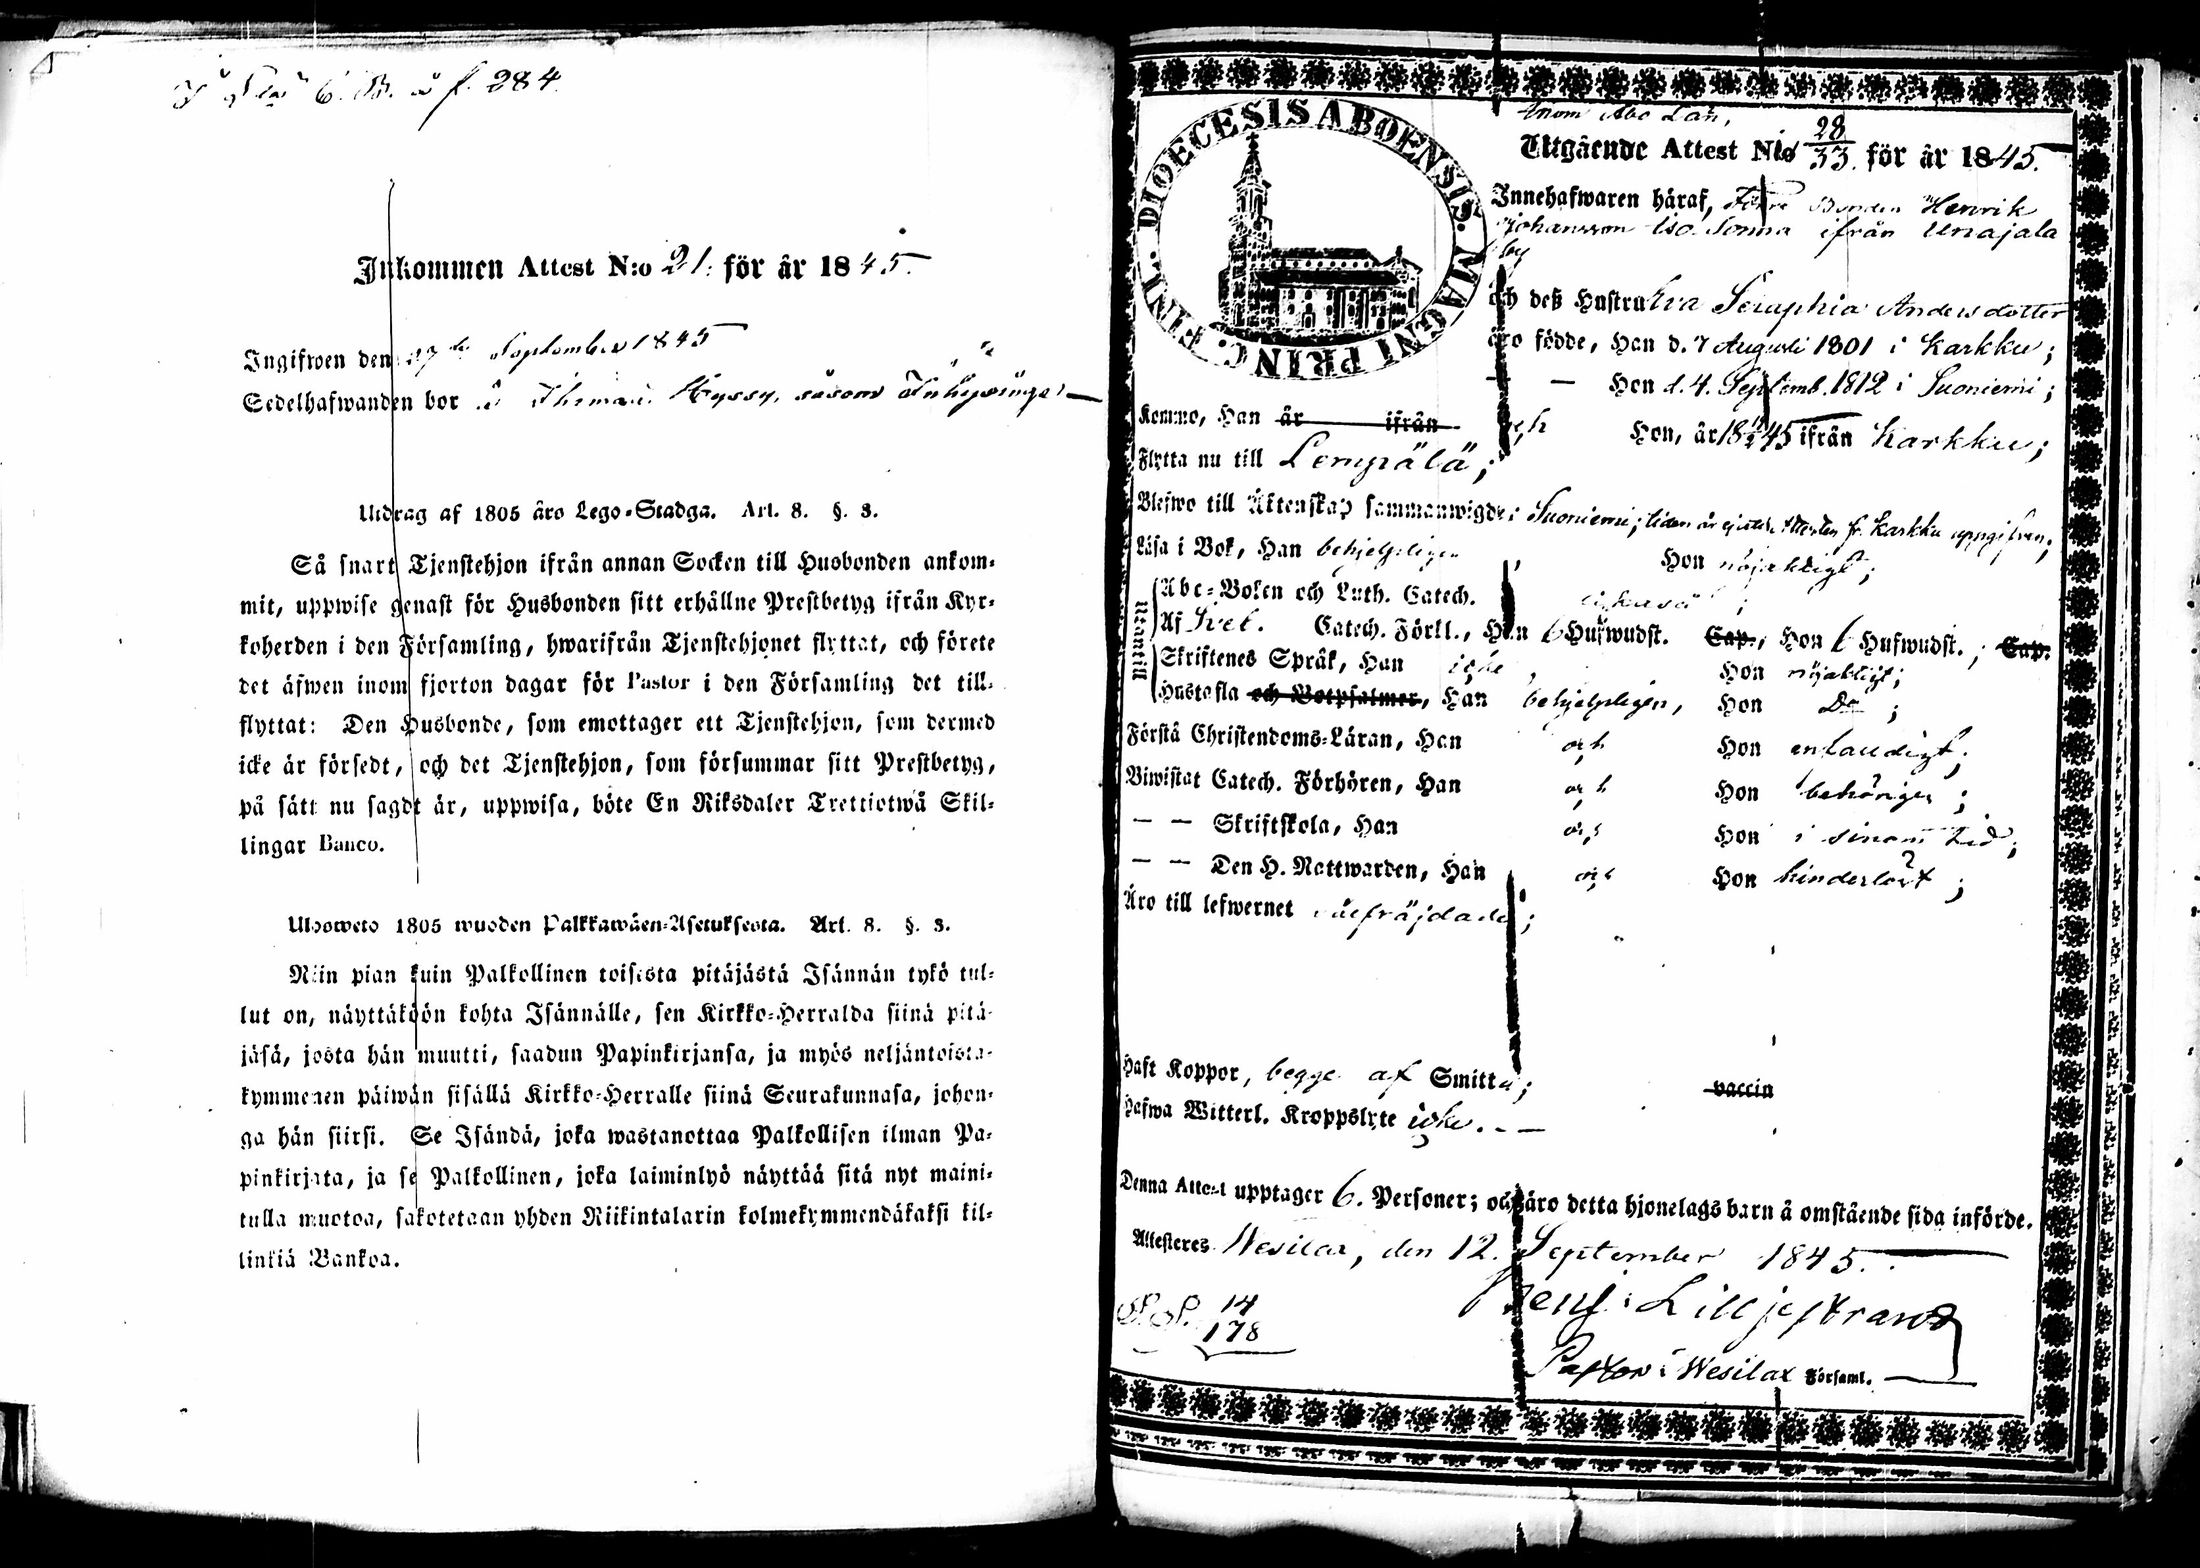 C. B. å f. 284.
Inkommen Attest N:o 21. för år 1845.
Ingifwen den 27de September 1845
Sedelhafwanden bor å Hyssy, såsom Inhysinge
Utdrag af 1805 års Lego-Stadga. Art. 8. §. 3.
Så snart Tjenstehjon ifrån annan Socken till Husbonden ankom-
mit, uppwise genast för Husbonden sitt erhållne Prestbetyg ifrån Kyr-
koherden i den Församling, hwarifrån Tjenstehjonet flyttat, och förete
det äfwen inom fjorton dagar för Pastor i den Församling det till-
flyttat: Den Husbonde, som emottager ett Tjenstehjon, som dermed
icke är försedt, och det Tjenstehjon, som försummar sitt Prestbetyg,
på sätt nu sagdt är, uppwisa, böte En Riksdaler Trettiotwå Skil-
lingar Banco.
Ulosweto 1805 wuoden Palkkawäen-Asetuksesta. Art. 8. §. 3.
Niin pian kuin Palkollinen toisesta pitäjästä Isännän tykö tul-
lut on, näyttäköön kohta Isännälle, sen Kirkko-Herralda siinä pitä-
jäsä, josta hän muutti, saadun Papinkirjansa, ja myös neljäntoista-
kymmenen päiwän sisällä Kirkko-Herralle siinä Seurakunnasa, johon-
ga hän siirsi. Se Isändä, joka wastanottaa Palkollisen ilman Pa-
pinkirjata, ja se Palkollinen, joka laiminlyö näyttää sitä nyt maini-
tulla muotoa, sakotetaan yhden Riikintalarin kolmekymmendäkaksi kil-
linkiä Bankoa.
DIOECESIS ABOENSIS. MAGNI PRINC. FINL.
inom Åbo Län,
Utgående Attest N:o 28/33. för år 1845.
Innehafwaren häraf, Förre Bonden Henrik
Johansson Iso Sonna ifrån Unajala
by
och deß Hustru Eva Seraphia Andersdotter
äro födde, Han d. 7 Augusti 1801 i Karkku;
— — Hon d. 4. Septemb. 1812 i Suoniemi;
Komne, Han är ifrån och Hon, år 1845 ifrån Karkku;
Flytta nu till Lempälä;
Blefwo till Äktenskap sammanwigde i Suoniemi; tiden är ej i attesten fr. Karkku uppgifven;
Läsa i Bok, Han behjelpligen, Hon nöjaktigt;
Utantill
Abc-Boken och Luth. Catech. likaså;
Af Svet. Catech. Förkl., Han 6 Hufwudst. Cap., Hon 6 Hufwudst.; Cap.
Skriftenes Språk, Han icke, Hon nöjaktigt;
Hustafla och Botpsalmer, Han behjelpligen, Hon Do;
Förstå Christendoms-Läran, Han och Hon enfaldigt;
Biwistat Catech. Förhören, Han och Hon behörigen;
— — Skriftskola, Han och Hon i sinom tid;
— — Den H. Nattwarden, Han och Hon hinderlöst;
Äro till lefwernet wälfräjdade;
Haft Koppor, begge af Smitta; vaccin
Hafwa Witterl. Kroppslyte icke. — —
Denna Attest upptager 6. Personer; och äro detta hjonelags barn å omstående sida införde.
Attesteres Wesilax, den 12. September 1845.
Benj. Lilljestrand
Pastor i Wesilax Församl.
14
178